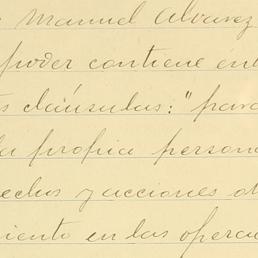 Manuel Alvarez
poder contiene ent
s cláusulas: "para
la propia persona
echos y acciones d
iento en las opera